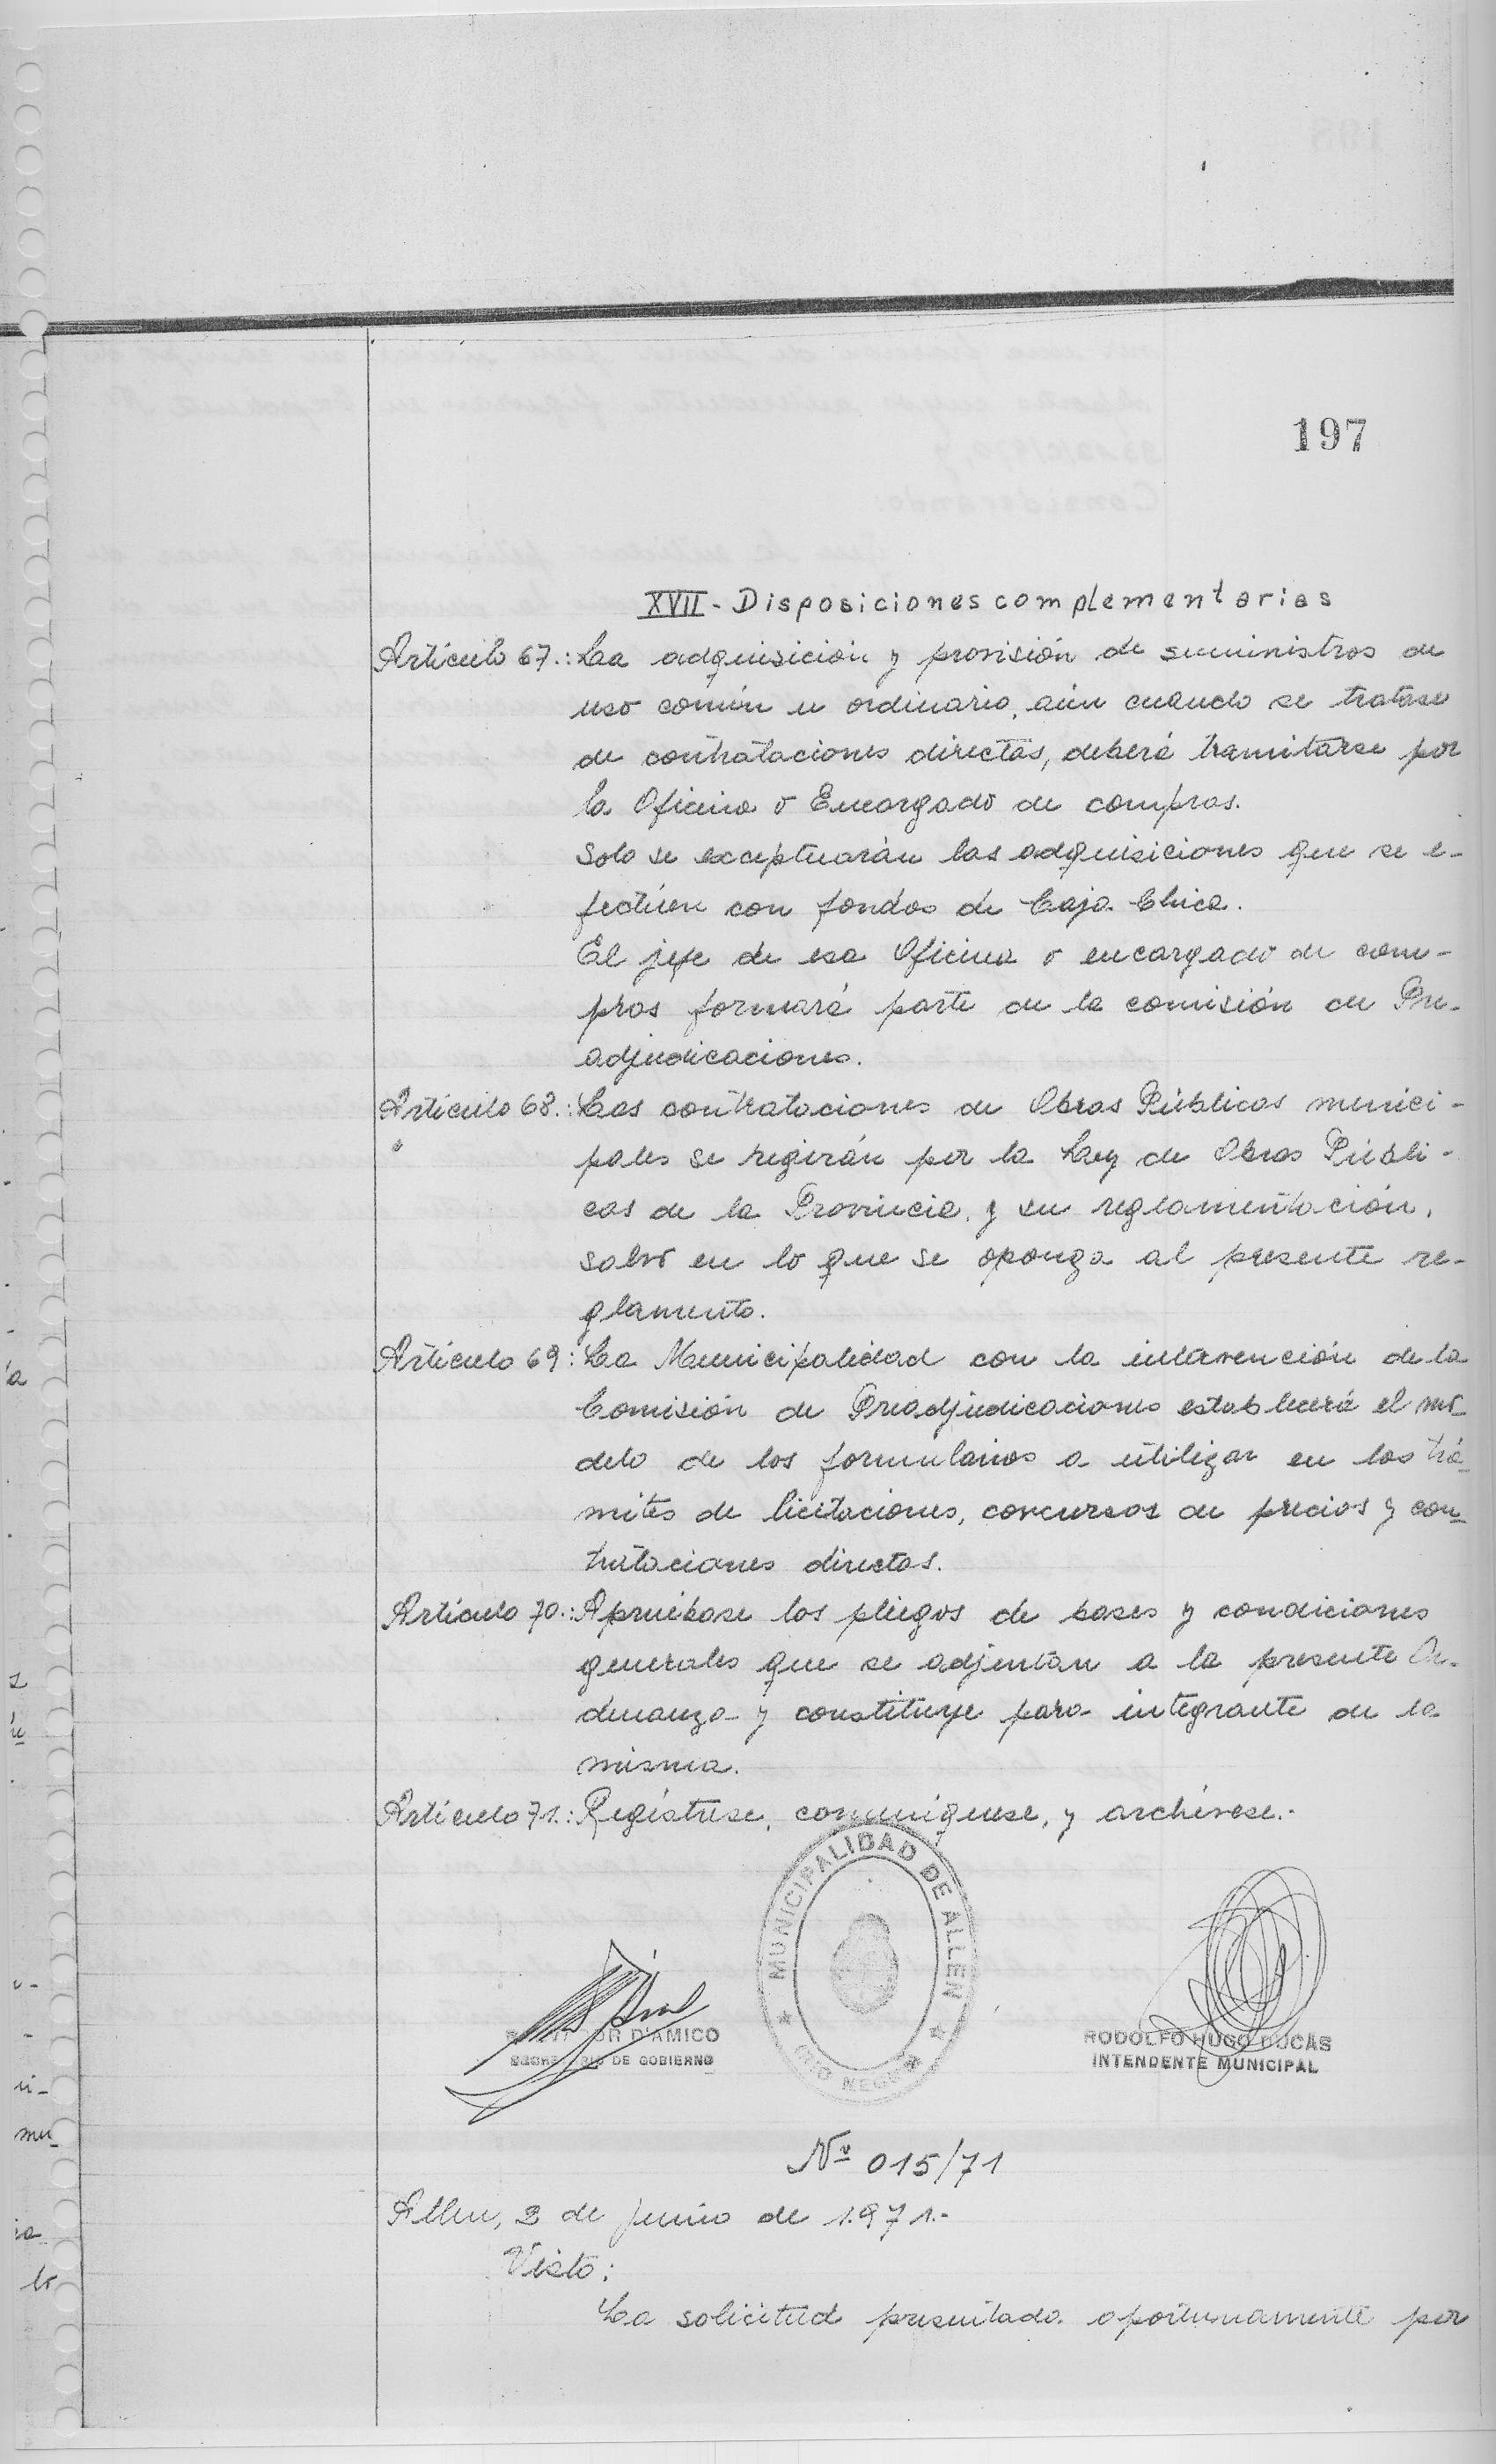 197
XVII - Disposiciones complementarias
Artículo 67.: La adquisición y provisión de suministros de
uso común u ordinario, aún cuando se tratase
de contrataciones directas, deberá tramitarse por
la Oficina o Encargado de compras.
Solo se exceptuarán las adquisiciones que se e-
fectúen con fondos de Caja Chica.
El jefe de esa Oficina o encargado de com-
pras formará parte de la comisión de Pre-
adjudicaciones.
Artículo 68.: Las contrataciones de Obras Públicas munici-
pales se regirán por la Ley de Obras Públi-
cas de la Provincia, y su reglamentación,
salvo en lo que se oponga al presente re-
glamento.
Artículo 69: La Municipalidad con la intervención de la
Comisión de Preadjudicaciones establecerá el mo-
delo de los formularios a utilizar en los trá-
mites de licitaciones, concursos de precios y con-
trataciones directas.
Artículo 70.: Apruébase los pliegos de bases y condiciones
generales que se adjuntan a la presente Or-
denanza y constituye para integrante de la
misma.
Artículo 71.: Regístrese, comuníquese, y archívese.-
MUNICIPALIDAD DE ALLEN
RIO NEGRO
D'AMICO
SECRETARIO DE GOBIERNO
RODOLFO HUGO DUCAS
INTENDENTE MUNICIPAL
Nº 015/71
Allen, 2 de junio de 1.971.-
Visto:
La solicitud presentada oportunamente por